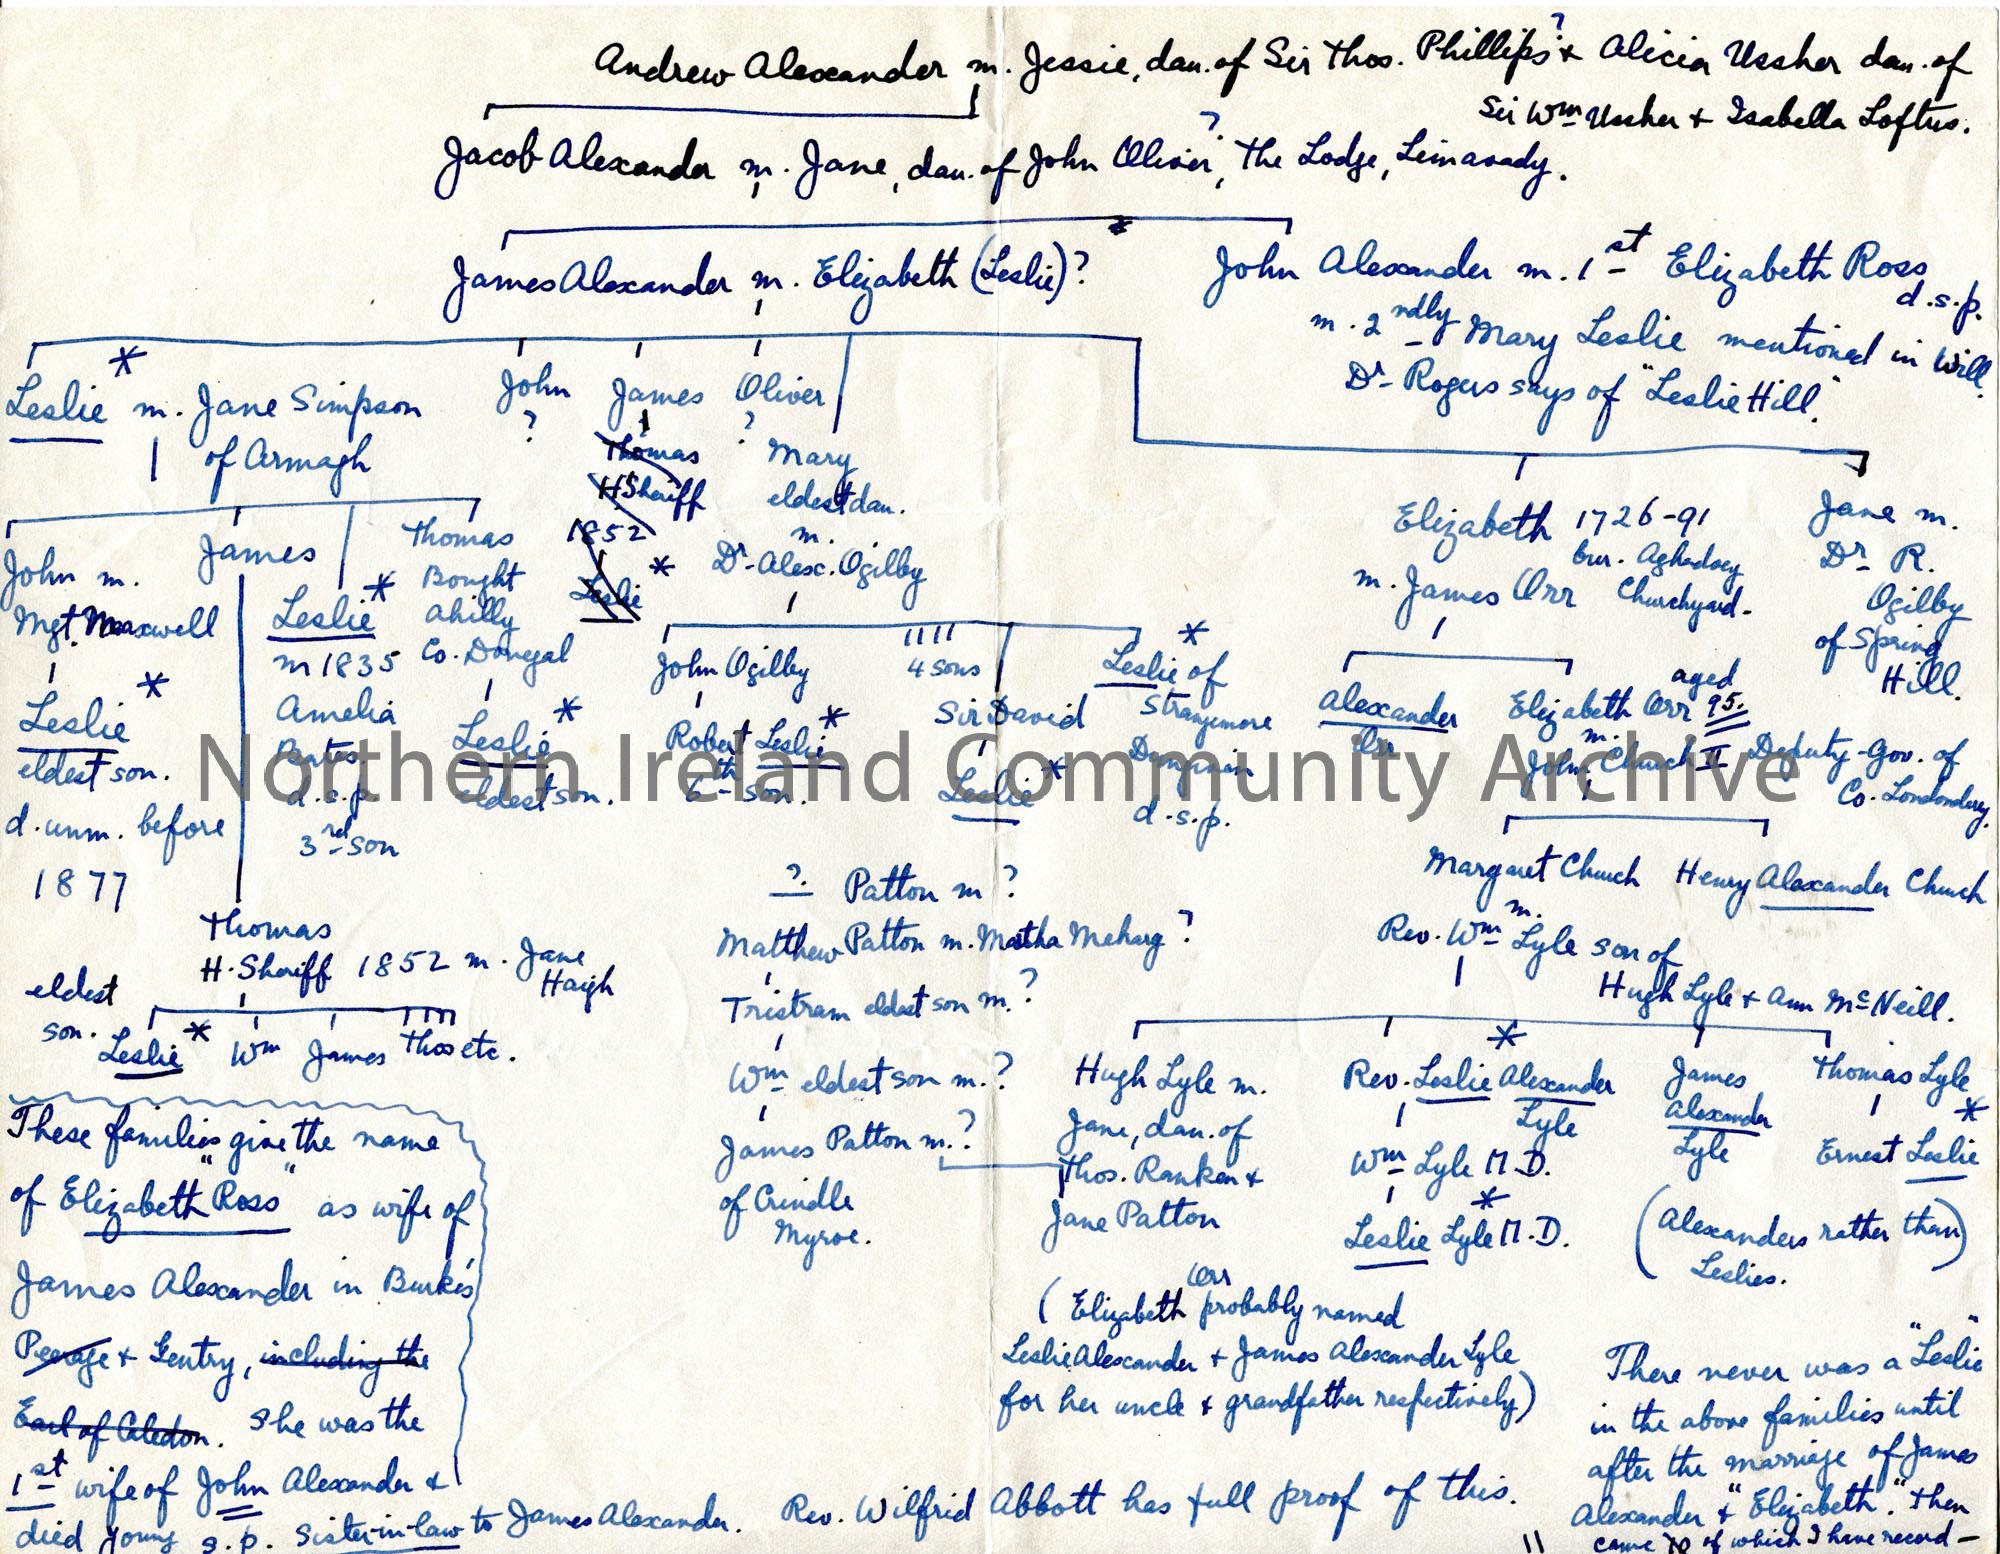 ?
Andrew Alexander m. Jessie, dau. of Sir Thos. Phillips & Alicia Ussher dau. of
Sir Wm Ussher & Isabella Loftus.
?
Jacob Alexander m. Jane, dau. of John Olivier, The Lodge, Limavady.
James Alexander m. Elizabeth (Leslie)?
John Alexander m. 1st Elizabeth Ross
d.s.p.
m. 2ndly Mary Leslie mentioned in Will.
Dr Rogers says of "Leslie Hill."
Leslie * m. Jane Simpson
of Armagh
John
?
James
Oliver
?
Thomas
H Sheriff
1852
Leslie *
Mary
eldest dau.
m.
Dr Alex. Ogilby
Elizabeth 1726-91
bur. Aghadoey
Churchyard.
m. James Orr
Jane m.
Dr R.
Ogilby
of Spring
Hill.
John m.
Mgt. Maxwell
Leslie *
eldest son.
d. unm. before
1877
James
Leslie *
m 1835
Amelia
Bates
d.s.p.
3rd son
Thomas
Bought
Ahilly
Co. Donegal
Leslie *
eldest son.
John Ogilby
Robert Leslie *
6th son.
4 sons
Sir David
Leslie *
Leslie * of
Strangemore
Dungiven
d.s.p.
Alexander
Orr
Elizabeth Orr aged 95.
m.
John Church II Deputy-Gov. of
Co. Londonderry.
Northern Ireland Community Archive
Margaret Church Henry Alexander Church
m.
Rev. Wm Lyle son of
Hugh Lyle & Ann McNeill.
Thomas
H. Sheriff 1852 m. Jane
Haigh
eldest
son.
Leslie * Wm James Thos etc.
? Patton m ?
Matthew Patton m. Martha Meharg ?
Tristram eldest son m. ?
Wm eldest son m. ?
James Patton m. ?
of Crindle
Myroe.
Hugh Lyle m.
Jane, dau. of
Thos. Ranken &
Jane Patton
Rev. Leslie * Alexander
Lyle
Wm Lyle M.D.
Leslie * Lyle M.D.
James
Alexander
Lyle
Thomas Lyle
Ernest Leslie *
(Alexanders rather than
Leslies.)
These families give the name
of Elizabeth "Ross" as wife of
James Alexander in Burke's
Peerage & Gentry, including the
Earl of Caledon. She was the
1st wife of John Alexander &
died young s.p. sister-in-law to James Alexander. Rev. Wilfrid Abbott has full proof of this.
Orr
(Elizabeth probably named
Leslie Alexander & James Alexander Lyle
for her uncle & grandfather respectively)
There never was a "Leslie"
in the above families until
after the marriage of James
Alexander & "Elizabeth." Then
came 10 of which I have record -
11